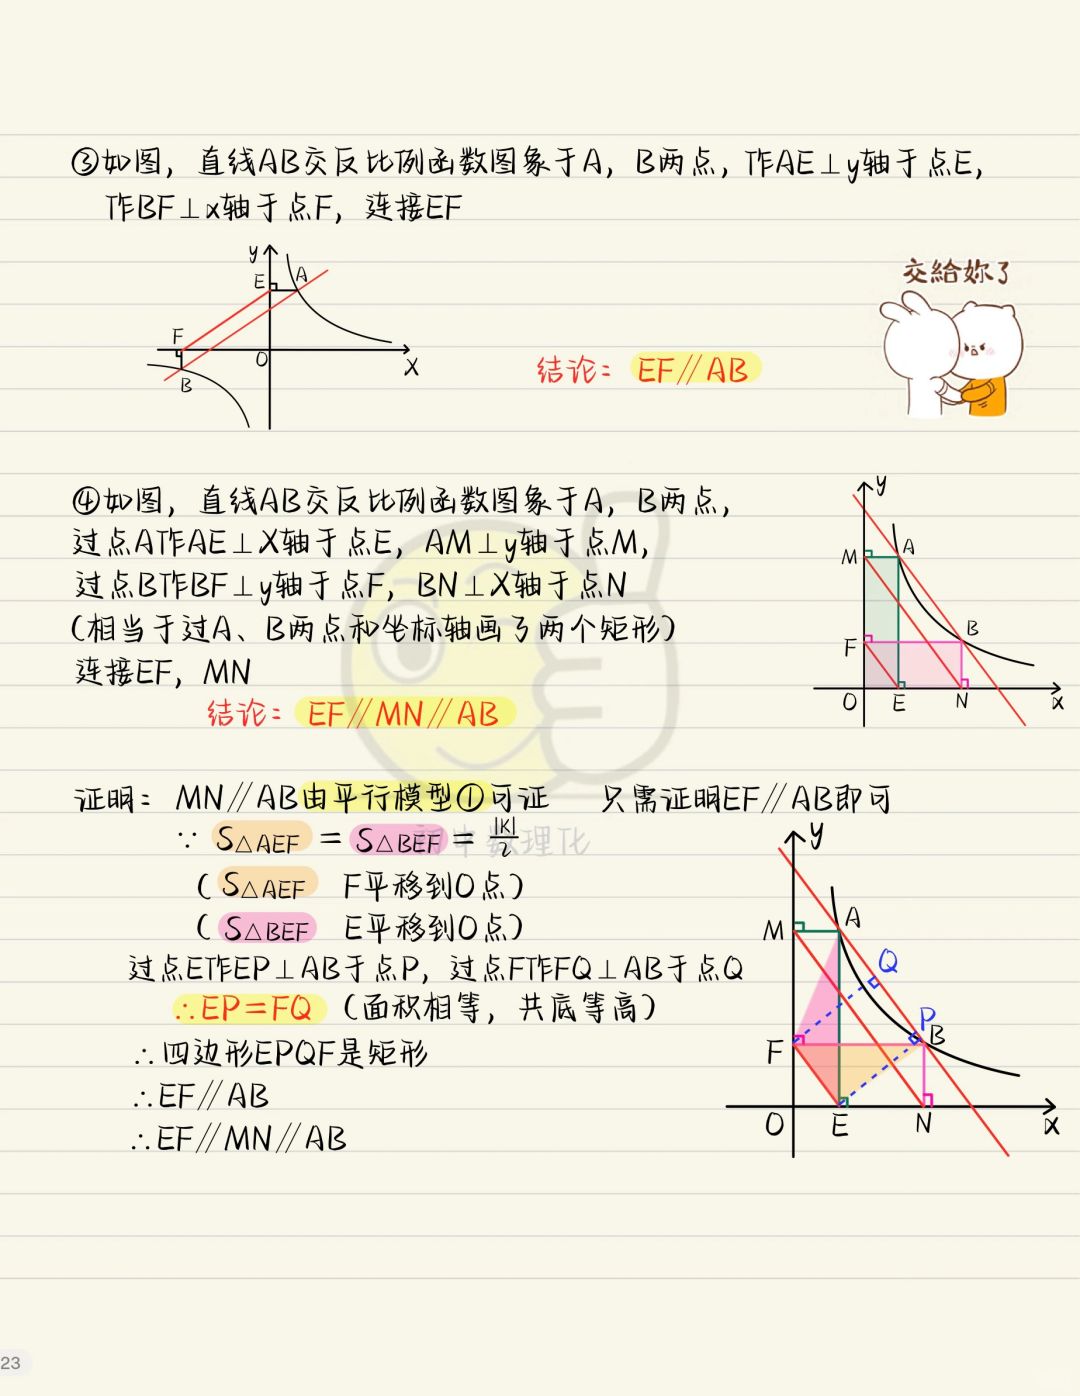 ③如图，直线AB交反比例函数图象于A，B两点，作AE⊥y轴于点E，
作BF⊥x轴于点F，连接EF
y
E
A
F
O
X
B
交給妳了
结论：EF∥AB
④如图，直线AB交反比例函数图象于A，B两点，
过点A作AE⊥X轴于点E，AM⊥y轴于点M，
过点B作BF⊥y轴于点F，BN⊥X轴于点N
（相当于过A、B两点和坐标轴画了两个矩形）
连接EF，MN
结论：EF∥MN∥AB
y
M
A
F
B
O
E
N
x
证明：MN∥AB由平行模型①可证 只需证明EF∥AB即可
∵ S△AEF = S△BEF = |K|/2
（S△AEF F平移到O点）
（S△BEF E平移到O点）
过点E作EP⊥AB于点P，过点F作FQ⊥AB于点Q
∴EP=FQ（面积相等，共底等高）
∴四边形EPQF是矩形
∴EF∥AB
∴EF∥MN∥AB
y
M
A
Q
P
B
F
O
E
N
x
初中数理化
23